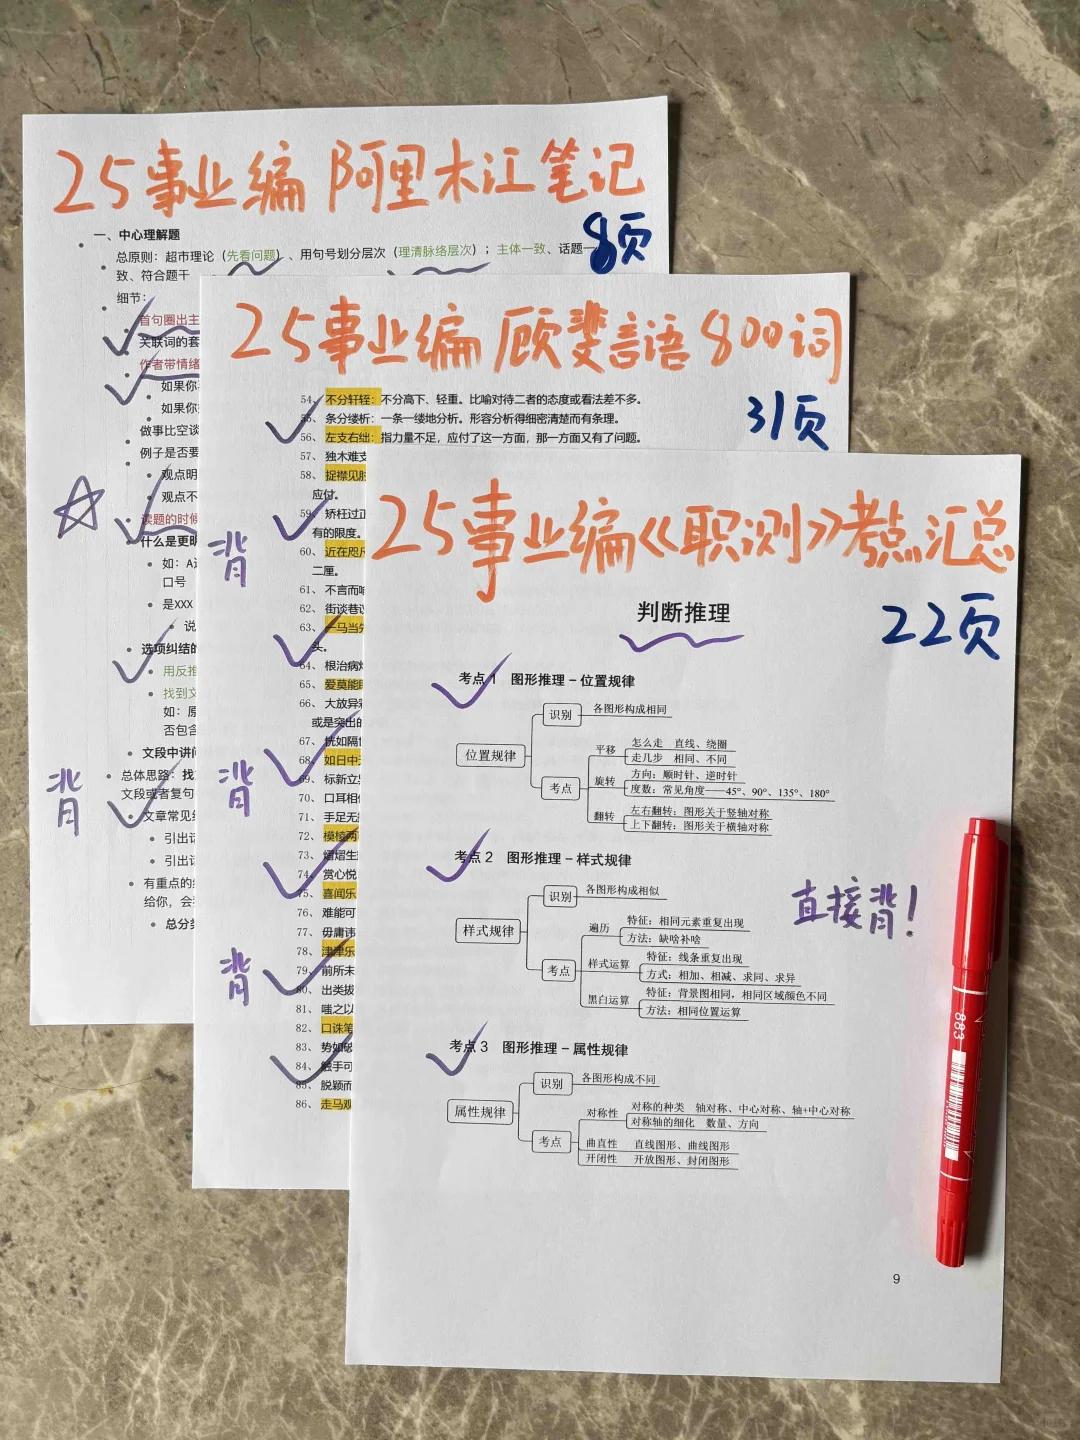 25事业编 阿里木江笔记
8页
一、中心理解题
总原则：超市理论（先看问题）、用句号划分层次（理清脉络层次）；主体一致、话题一
致、符合题干
细节：
首句圈出主
关联词的套
作者带情绪
如果你
如果你
做事比空谈
例子是否要
观点明
观点不
读题的时候
什么是更明
如：A
口号
是XXX
说
选项纠结的
用反推
找到文
如：原
否包含
文段中讲问
总体思路：找
文段或者复句
文章常见结
引出话
引出话
有重点的
给你，会
总分
背
25事业编 顾斐言語 800词
31页
54、不分轩轾：不分高下、轻重。比喻对待二者的态度或看法差不多。
55、条分缕析：一条一缕地分析。形容分析得细密清楚而有条理。
56、左支右绌：指力量不足，应付了这一方面，那一方面又有了问题。
57、独木难支
58、捉襟见肘
应付。
59、矫枉过正
有的限度。
60、近在咫尺
二厘。
61、不言而喻
62、街谈巷议
63、一马当先
头。
64、根治病
65、爱莫能助
66、大放异彩
或是突出的
67、恍如隔世
68、如日中天
69、标新立异
70、口耳相传
71、手足无措
72、模棱两可
73、熠熠生
74、赏心悦
75、喜闻乐
76、难能可
77、毋庸讳
78、津津乐
79、前所未
80、出类拔
81、嗤之以
82、口诛笔
83、势如破
84、触手可
85、脱颖而
86、走马观
背
背
背
25事业编《职测》考点汇总
22页
判断推理
考点 1 图形推理－位置规律
位置规律
识别 各图形构成相同
考点
平移 怎么走 直线、绕圈
走几步 相同、不同
旋转 方向：顺时针、逆时针
度数：常见角度——45°、90°、135°、180°
翻转 左右翻转：图形关于竖轴对称
上下翻转：图形关于横轴对称
考点 2 图形推理－样式规律
样式规律
识别 各图形构成相似
考点
遍历 特征：相同元素重复出现
方法：缺啥补啥
样式运算 特征：线条重复出现
方式：相加、相减、求同、求异
黑白运算 特征：背景图相同，相同区域颜色不同
方法：相同位置运算
直接背！
考点 3 图形推理－属性规律
属性规律
识别 各图形构成不同
考点
对称性 对称的种类 轴对称、中心对称、轴+中心对称
对称轴的细化 数量、方向
曲直性 直线图形、曲线图形
开闭性 开放图形、封闭图形
9
883